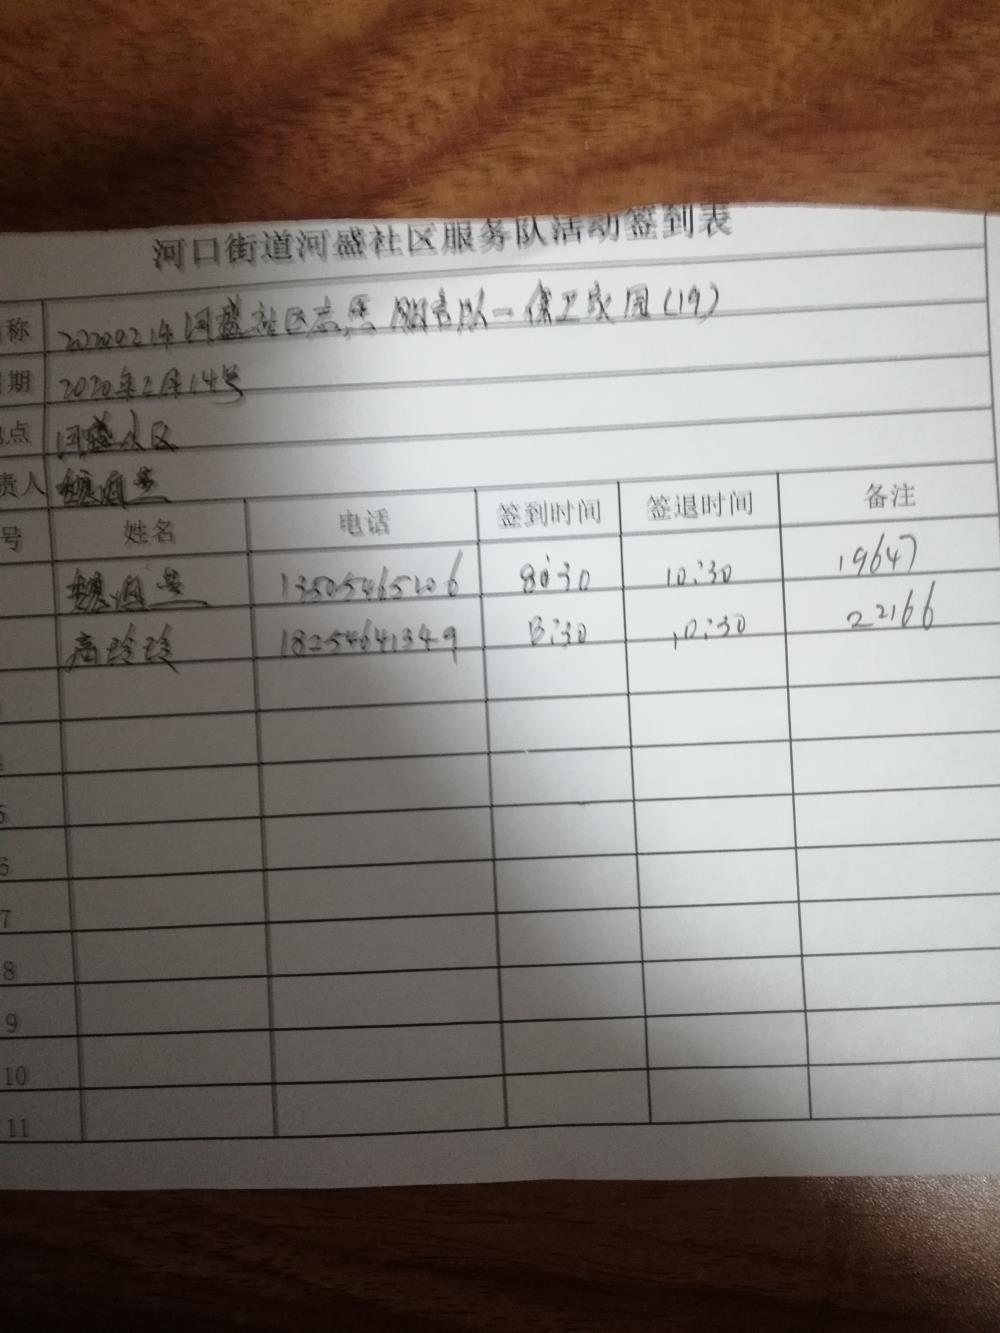 河口街道河盛社区服务队活动签到表
称 20200214河盛社区志愿服务队一保卫家园(19)
期 2020年2月14号
点 河盛小区
责人 魏海兰
号 姓名 电话 签到时间 签退时间 备注
魏海兰 13505465206 8:30 10:30 19647
高玲玲 18254641349 8:30 10:30 22166
5
6
7
8
9
10
11